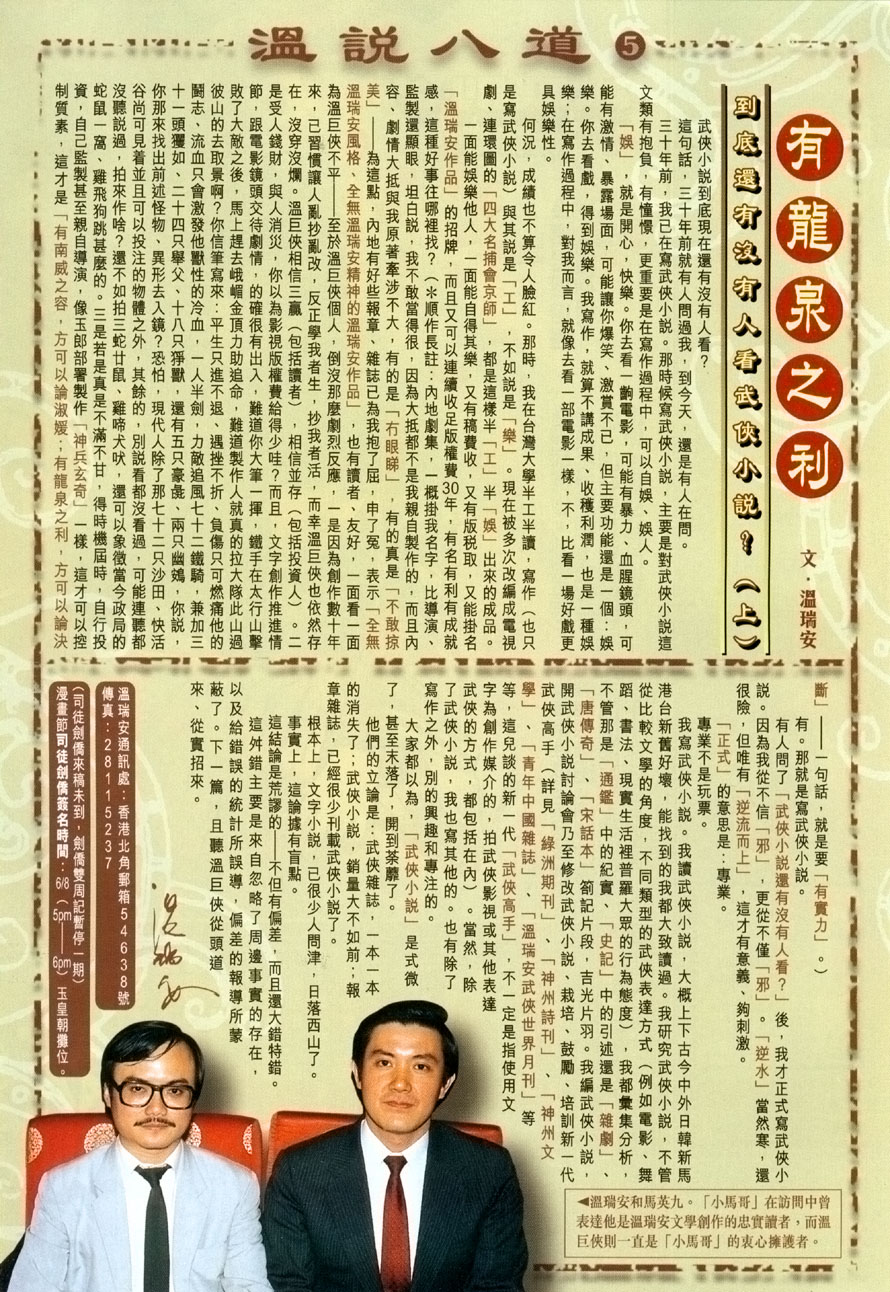 溫説八道 5
有龍泉之利
文．溫瑞安
到底還有沒有人看武俠小説？（上）
武俠小説到底現在還有沒有人看？
這句話，三十年前就有人問過我，到今天，還是有人在問。
三十年前，我已在寫武俠小説。那時候寫武俠小説，主要是對武俠小説這
文類有抱負，有憧憬，更重要是在寫作過程中，可以自娛、娛人。
「娛」，就是開心，快樂。你去看一齣電影，可能有暴力、血腥鏡頭，可
能有激情、暴露場面，可能讓你爆笑、激賞不已，但主要功能還是一個：娛
樂。你去看戲，得到娛樂。我寫作，就算不講成果、收穫利潤，也是一種娛
樂；在寫作過程中，對我而言，就像去看一部電影一樣，不，比看一場好戲更
具娛樂性。
何況，成績也不算令人臉紅。那時，我在台灣大學半工半讀，寫作（也只
是寫武俠小説）與其説是「工」，不如説是「樂」。現在被多次改編成電視
劇、連環圖的「四大名捕會京師」，都是這樣半「工」半「娛」出來的成品。
一面能娛樂他人，一面能自得其樂，又有稿費收，又有版税取，又能掛名
「溫瑞安作品」的招牌，而且又可以連續收足版權費30年，有名有利有成就
感，這種好事往哪裡找？（＊順作長註：內地劇集，一概掛我名字，比導演、
監製還顯眼，坦白説，我不敢當得很，因為大抵都不是我親自製作的，而且內
容、劇情大抵與我原著牽涉不大，有的是「冇眼睇」，有的真是「不敢掠
美」——為這點，內地有好些報章、雜誌已為我抱了屈，申了冤，表示「全無
溫瑞安風格、全無溫瑞安精神的溫瑞安作品」，也有讀者、友好，一面看一面
為溫巨俠不平——至於溫巨俠個人，倒沒那麼劇烈反應，一是因為創作數十年
來，已習慣讓人亂抄亂改，反正學我者生，抄我者活，而幸溫巨俠也依然存
在，沒穿沒爛。溫巨俠相信三贏（包括讀者），相信並存（包括投資人）。二
是受人錢財，與人消災，你以為影視版權費給得少哇？而且，文字創作推進情
節，跟電影鏡頭交待劇情，的確很有出入，難道你大筆一揮，鐵手在太行山擊
敗了大敵之後，馬上趕去峨嵋金頂力助追命，難道製作人就真的拉大隊此山過
彼山的去取景啊？你信筆寫來：平生只進不退、遇挫不折、負傷只可燃痛他的
鬪志、流血只會激發他獸性的冷血，一人半劍，力敵追風七十二鐵騎，兼加三
十一頭玃如、二十四只舉父、十八只猙獸，還有五只豪彘、兩只幽鴳，你說，
你那來找出前述怪物、異形去入鏡？恐怕，現代人除了那七十二只沙田、快活
谷尚可見着並且可以投注的物體之外，其餘的，別説看都沒看過，可能連聽都
沒聽説過，拍來作啥？還不如拍三蛇廿鼠、雞啼犬吠，還可以象徵當今政局的
蛇鼠一窩、雞飛狗跳甚麼的。三是若是真是不滿不甘，得時機屆時，自行投
資，自己監製甚至親自導演，像玉郎部署製作「神兵玄奇」一樣，這才可以控
制質素，這才是「有南威之容，方可以論淑媛；有龍泉之利，方可以論決
斷」——一句話，就是要「有實力」。）
有。那就是寫武俠小説。
有人問了「武俠小説還有沒有人看？」後，我才正式寫武俠小
説。因為我從不信「邪」，更從不僅「邪」。「逆水」當然寒，還
很險，但唯有「逆流而上」，這才有意義、夠刺激。
「正式」的意思是：專業。
專業不是玩票。
我寫武俠小説。我讀武俠小説，大概上下古今中外日韓新馬
港台新舊好壞，能找到的我都大致讀過。我研究武俠小説，不管
從比較文學的角度，不同類型的武俠表達方式（例如電影、舞
蹈、書法、現實生活裡普羅大眾的行為態度），我都彙集分析，
不管那是「通鑑」中的紀實、「史記」中的引述還是「雜劇」、
「唐傳奇」、「宋話本」箚記片段，吉光片羽。我編武俠小説，
開武俠小説討論會乃至修改武俠小説、栽培、鼓勵、培訓新一代
武俠高手（詳見「綠洲期刊」、「神州詩刊」、「神州文
學」、「青年中國雜誌」、「溫瑞安武俠世界月刊」等
等，這兒談的新一代「武俠高手」，不一定是指使用文
字為創作媒介的，拍武俠影視或其他表達
武俠的方式，都包括在內）。當然，除
了武俠小説，我也寫其他的。也有除了
寫作之外，別的興趣和專注的。
大家都以為，「武俠小説」是式微
了，甚至末落了，開到荼蘼了。
他們的立論是：武俠雜誌，一本一本
的消失了；武俠小説，銷量大不如前；報
章雜誌，已經很少刊載武俠小説了。
根本上，文字小説，已很少人問津，日落西山了。
事實上，這論據有盲點。
這結論是荒謬的——不但有偏差，而且還大錯特錯。
這舛錯主要是來自忽略了周邊事實的存在，
以及給錯誤的統計所誤導，偏差的報導所蒙
蔽了。下一篇，且聽溫巨俠從頭道
來、從實招來。
溫瑞安
溫瑞安通訊處：香港北角郵箱54638號
傳真：28115237
（司徒劍僑來稿未到，劍僑雙周記暫停一期）
漫畫節司徒劍僑簽名時間：6/8（5pm——6pm）玉皇朝攤位。
◀溫瑞安和馬英九。「小馬哥」在訪問中曾
表達他是溫瑞安文學創作的忠實讀者，而溫
巨俠則一直是「小馬哥」的衷心擁護者。